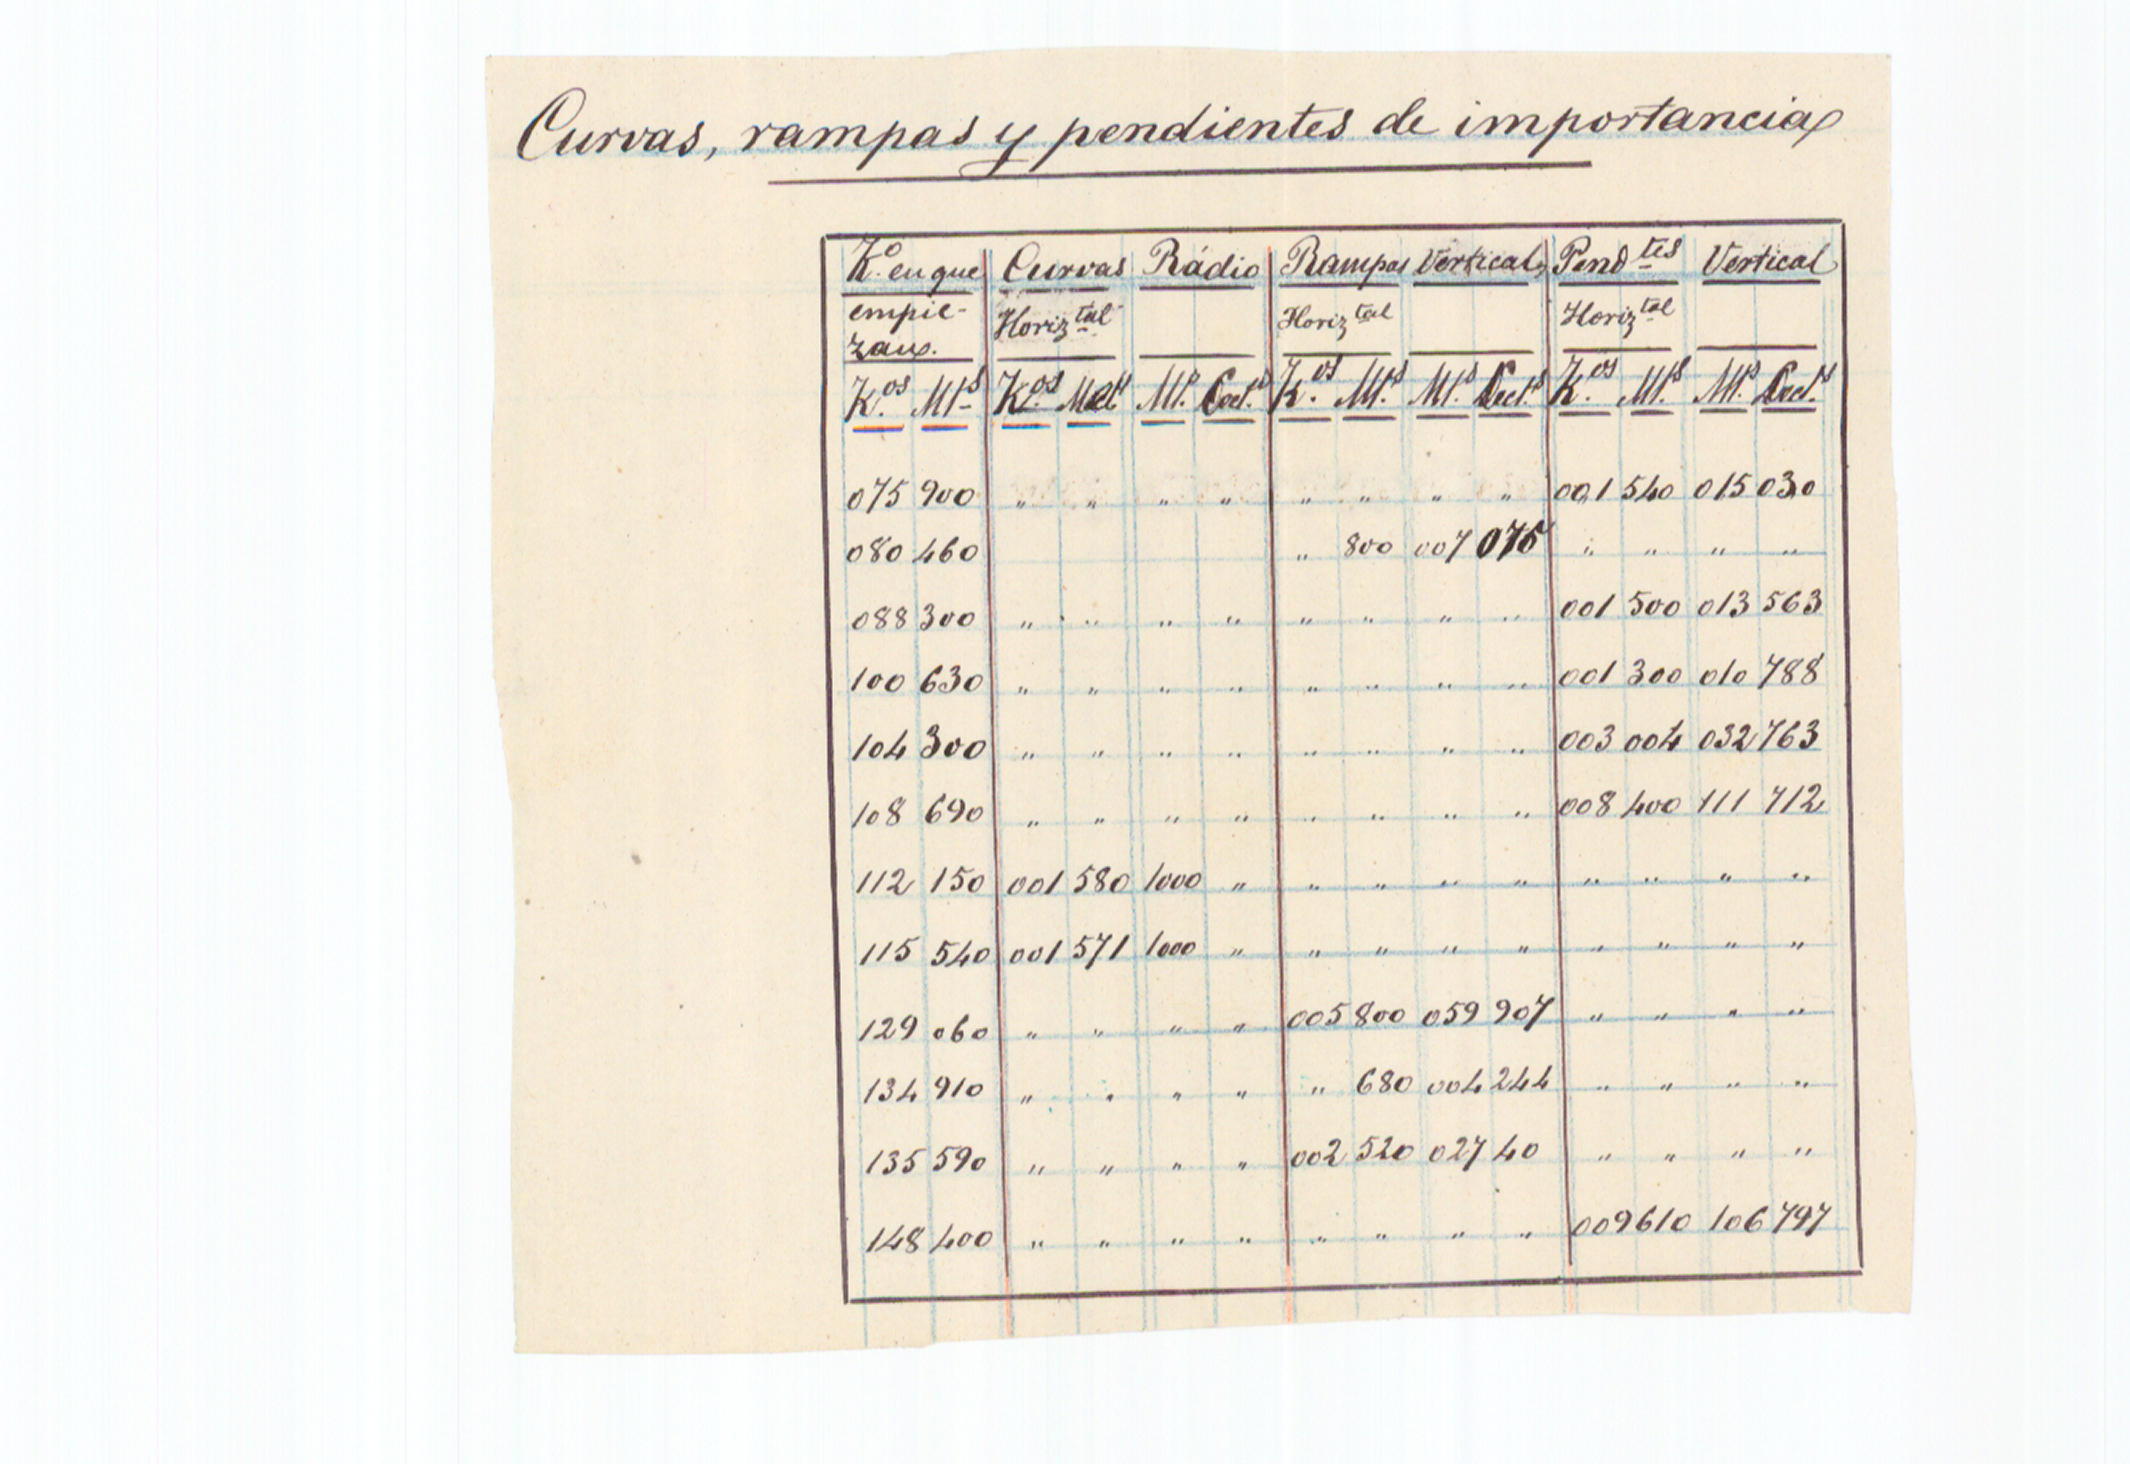 Curvas, rampas y pendientes de importancia
Kº en que Curvas Rádio Rampas Vertical Pendtes Vertical
empie- Horiztal Horiztal Horiztal
zan.
K.os Mts K.os Met M.s Cect.s K.os Mt.s Mt.s Dect.s K.os Mt.s Mt.s Dect.s
075 900 " " " " " " " " 001 540 015 030
080 460 " 800 007 075 " " " "
088 300 " " " " " " " " 001 500 013 563
100 630 " " " " " " " " 001 300 010 788
104 300 " " " " " " " " 003 004 032 763
108 690 " " " " " " " " 008 400 111 712
112 150 001 580 1000 " " " " " " " " "
115 540 001 571 1000 " " " " " " " " "
129 060 " " " " 005 800 059 907 " " " "
134 910 " " " " " 680 004 244 " " " "
135 590 " " " " 002 520 027 40 " " " "
148 400 " " " " " " " " 009 610 106 797